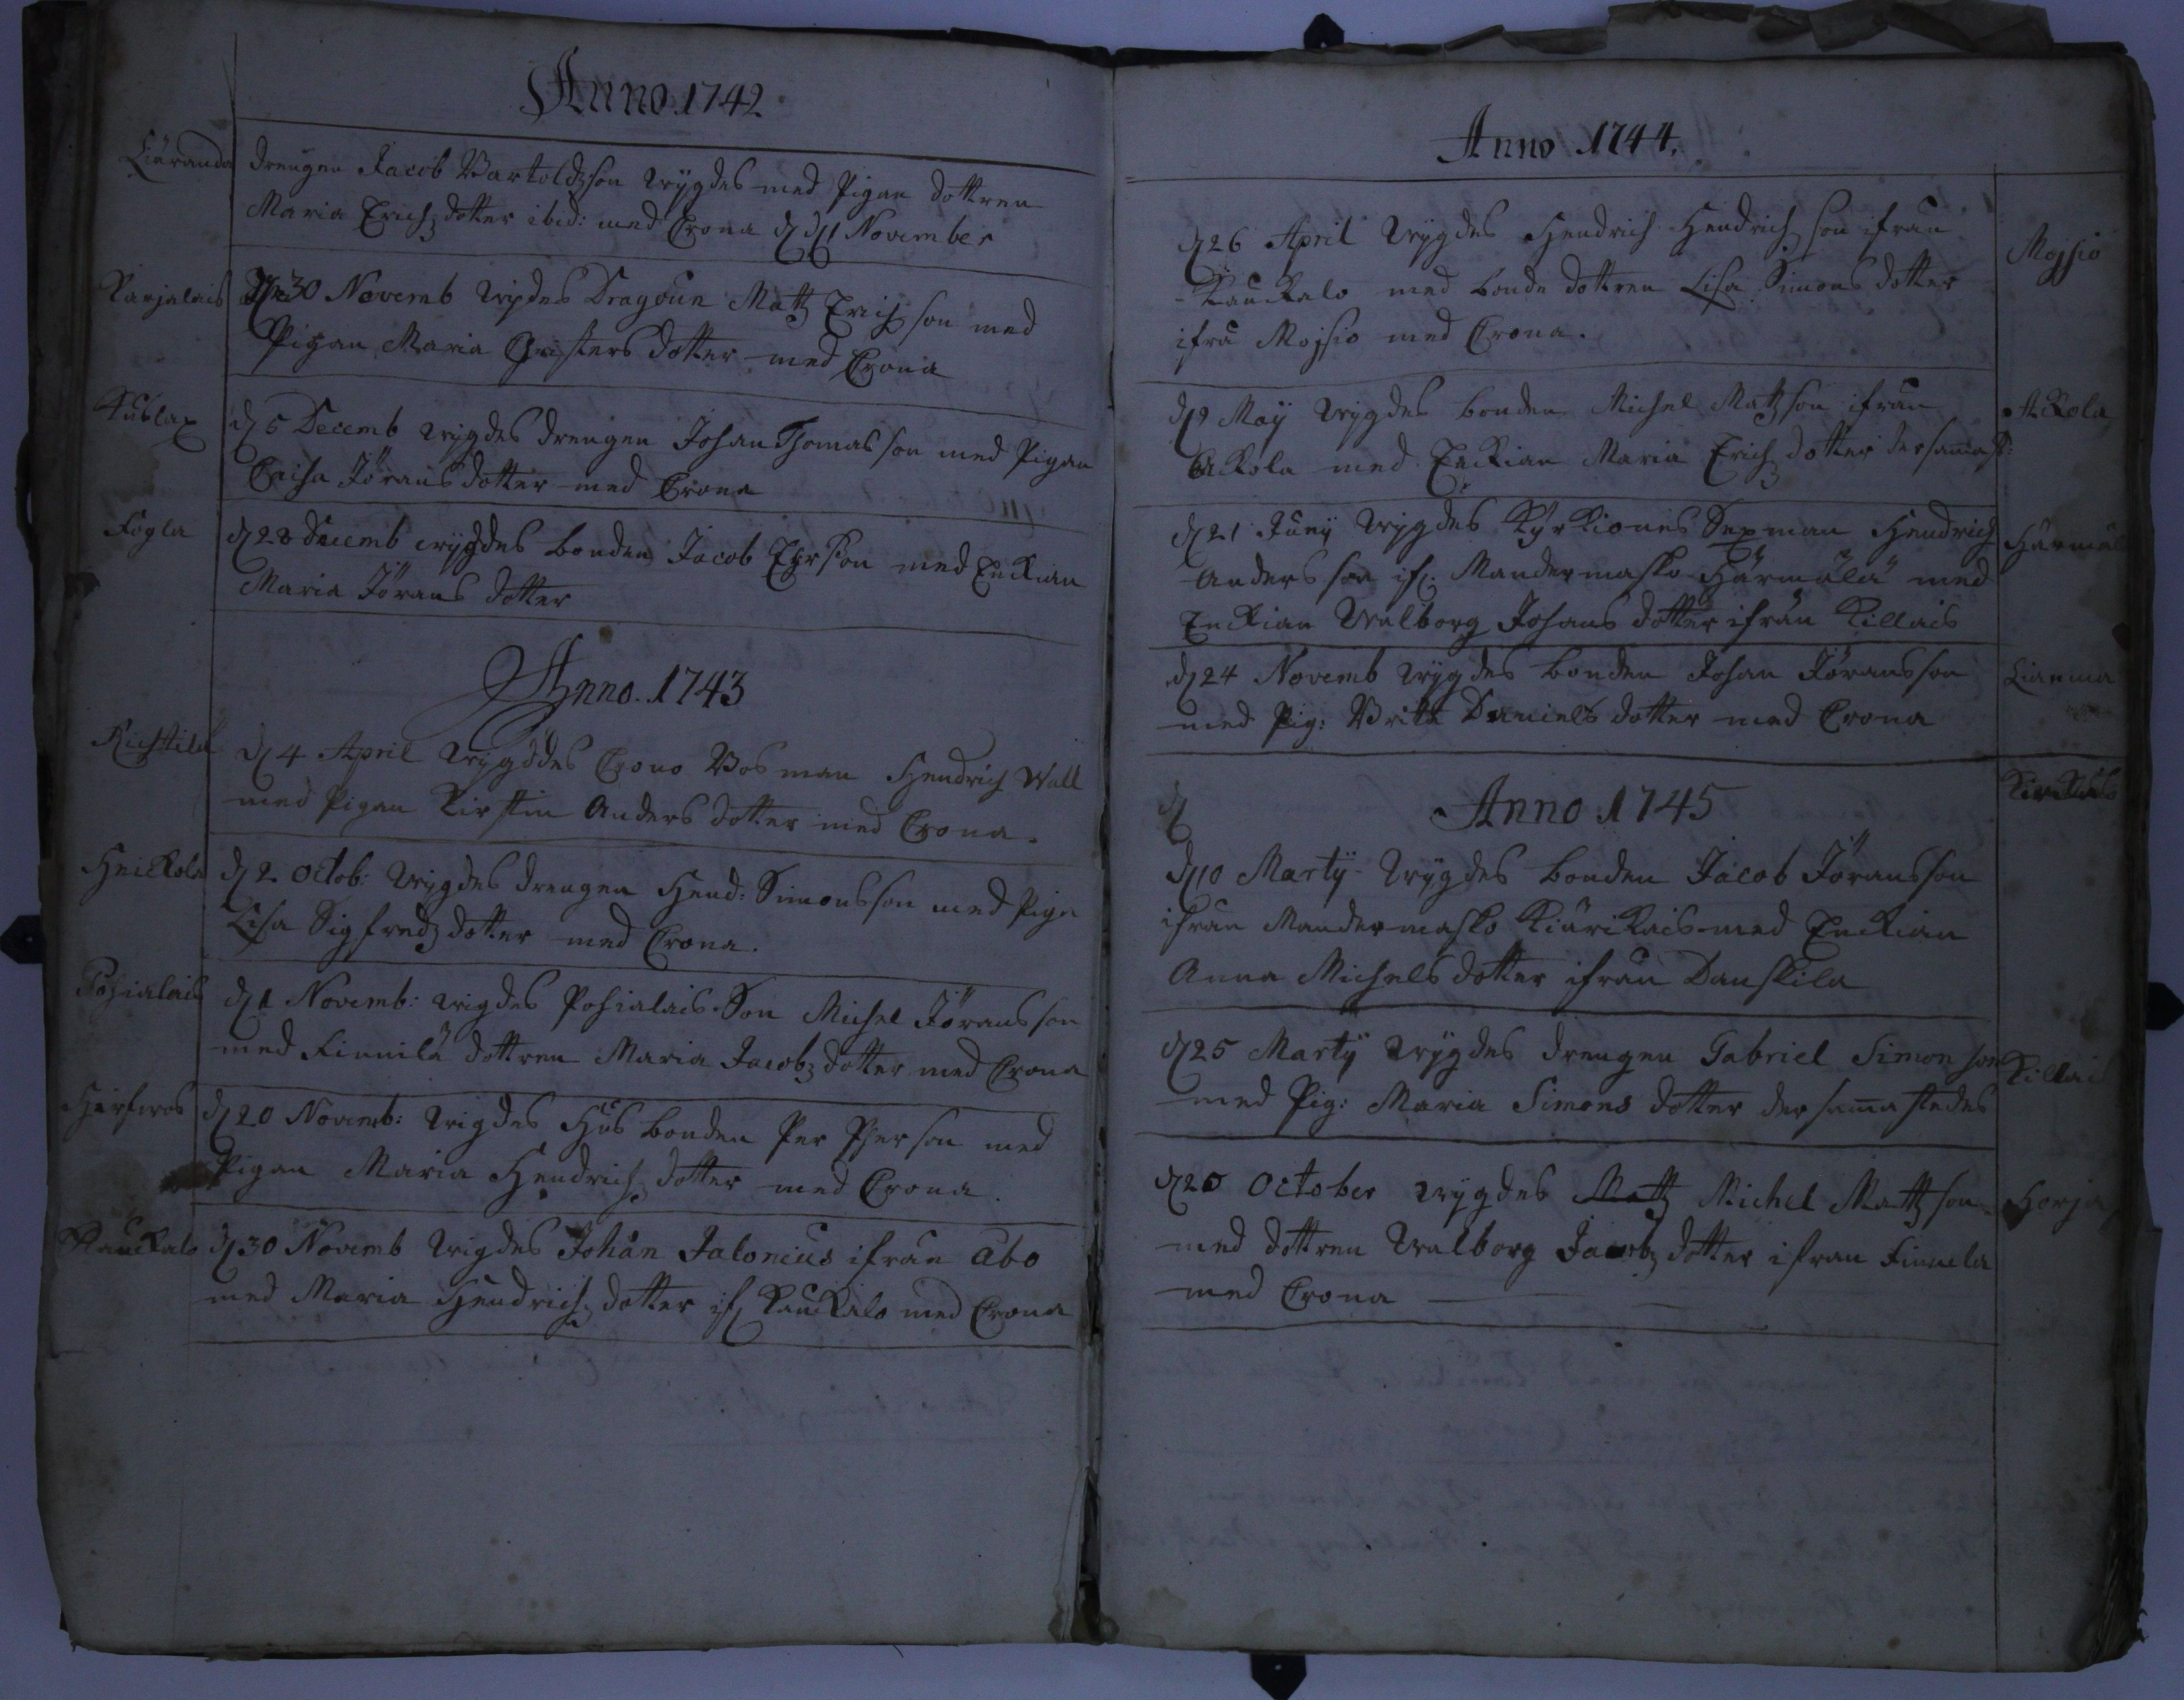 Anno 1742
Liuranda drengen Jacob Bartoldzson wygdes med Pigan dottren
Maria Erichz dotter ibid: med Crona d 11 November
Karjalais d 30 Novemb wigdes Dragoun Matz Erichson med
Pigan Maria Christers dotter med Crona
Kublax d 5 Decemb wygdes drengen Johan Thomasson med Pigan
Caisa Jörans dotter med Crona
Fogla d 28 Decemb wygdes bonden Jacob Ersson med Enckian
Maria Jörans dotter
Anno. 1743
Richtilä d 4 April wygddes Crono Bosman Hendrich Wall
med Pigan Kirstin Anders dotter med Crona.
Heickola d 2. Octob: wygdes drengen Hend: Simonsson med Piga
Lisa Sigfredz dotter med Crona.
Pohialais d 1 Novemb: wigdes Pohialais Son Michel Jöransson
med Finnilä dottren Maria Jacobz dotter med Crona
Herfwos d 20 Novemb: wigdes Husbonden Per Pherson med
Pigan Maria Hendrichz dotter med Crona.
Kauckalo d 30 Novemb wigdes Johan Jalonius ifrån Åbo
med Maria Hendrichz dotter if Kauckalo med Crona
Anno 1744.
d 26 April wygdes Hendrich Hendrichson ifrån Mojsio
Kauckalo med bonde dottren Lisa Simons dotter
ifrå Mojsio med Crona.
d 9 Maÿ wygdes bonden Michel Matzson ifrån Ackola
Ackola med Enckian Maria Erichz dotter dersammast:
d 21 Junÿ wygdes Kyrkiones Sexman Hendrich Härmälä
Anders son if. Mandermasko Härmälä med
Enckian Walborg Johans dotter ifrån Killais
d 24 Novemb wygdes bonden Johan Jöransson Lianma
med Pig: Brita Daniels dotter med Crona
Anno 1745
d 10 Martÿ wygdes bonden Jacob Jöransson
ifrån Mandermasko Kiärikais med Enckian
Anna Michels dotter ifrån Danskila
d 25 Martÿ wygdes drengen Gabriel Simonson Killais
med Pig: Maria Simons dotter dersamma stedes
d 20 October wygdes Matz Michel Mattson
med dottren Walborg Jacobz dotter ifran Finnela
med Crona